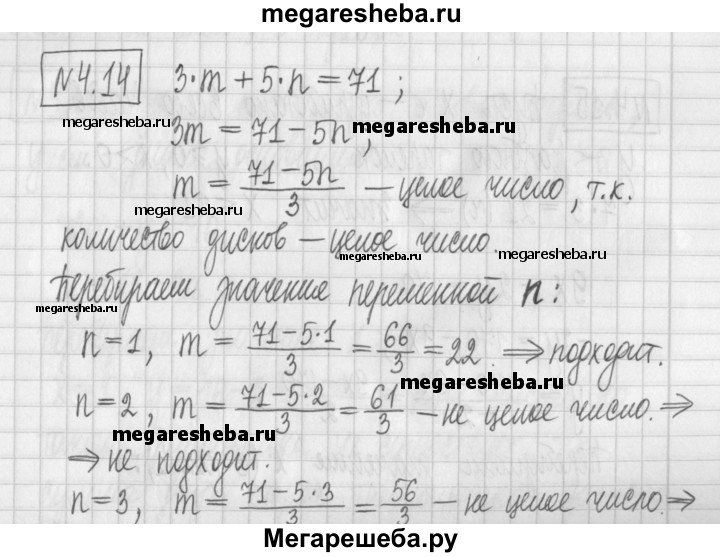 megaresheba.ru
N4.14 3·m + 5·n = 71 ;
megaresheba.ru 3m = 71 - 5n, megaresheba.ru
m = \frac{71-5n}{3} – целое число, т.к.
megaresheba.ru
количество дисков – целое число.
megaresheba.ru megaresheba.ru
Перебираем значение переменной n:
megaresheba.ru
n=1, m = \frac{71-5·1}{3} = \frac{66}{3} = 22. ⇒ подходит.
megaresheba.ru
n=2, m = \frac{71-5·2}{3} = \frac{61}{3} – не целое число. ⇒
megaresheba.ru
⇒ не подходит.
n=3, m = \frac{71-5·3}{3} = \frac{56}{3} – не целое число. ⇒
Мегарешеба.ру